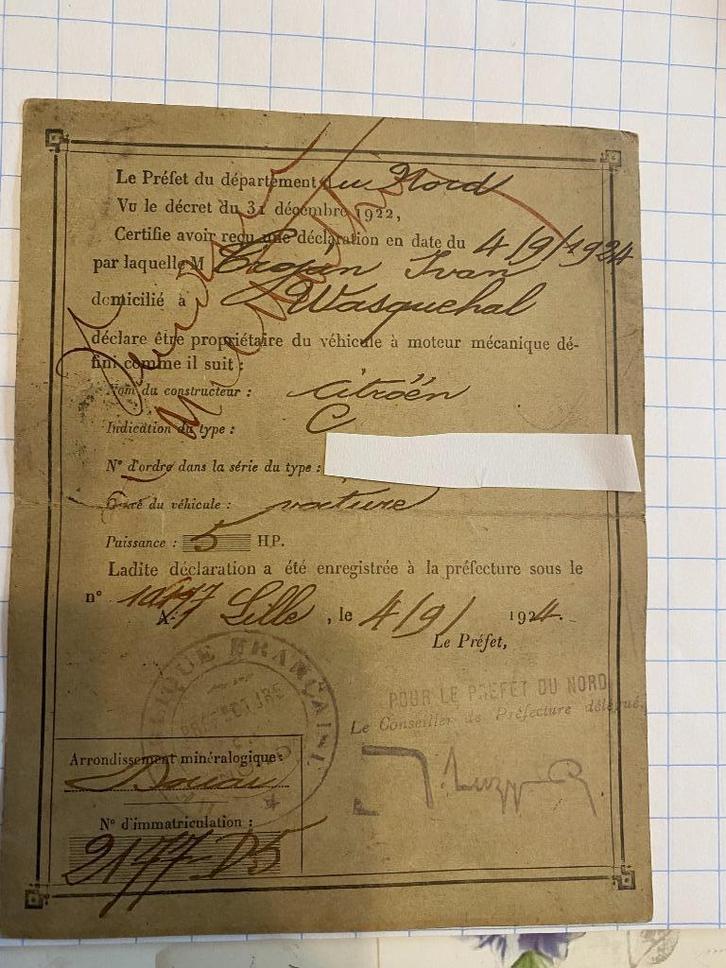 Le Préfet du département du Nord
Vu le décret du 31 décembre 1922,
Certifie avoir reçu une déclaration en date du 4/9/1924
par laquelle M Ivan
domicilié à Wasquehal
déclare être propriétaire du véhicule à moteur mécanique dé-
fini comme il suit :
Nom du constructeur : Citroën
Indication du type : C
N° d'ordre dans la série du type :
Genre du véhicule : voiture
Puissance : 5 HP.
Ladite déclaration a été enregistrée à la préfecture sous le
n° Lille, le 4/9/ 1924.
Le Préfet,
POUR LE PREFET DU NORD
Le Conseiller de Préfecture délégué,
Arrondissement minéralogique :
Douai
N° d'immatriculation :
2177-D5